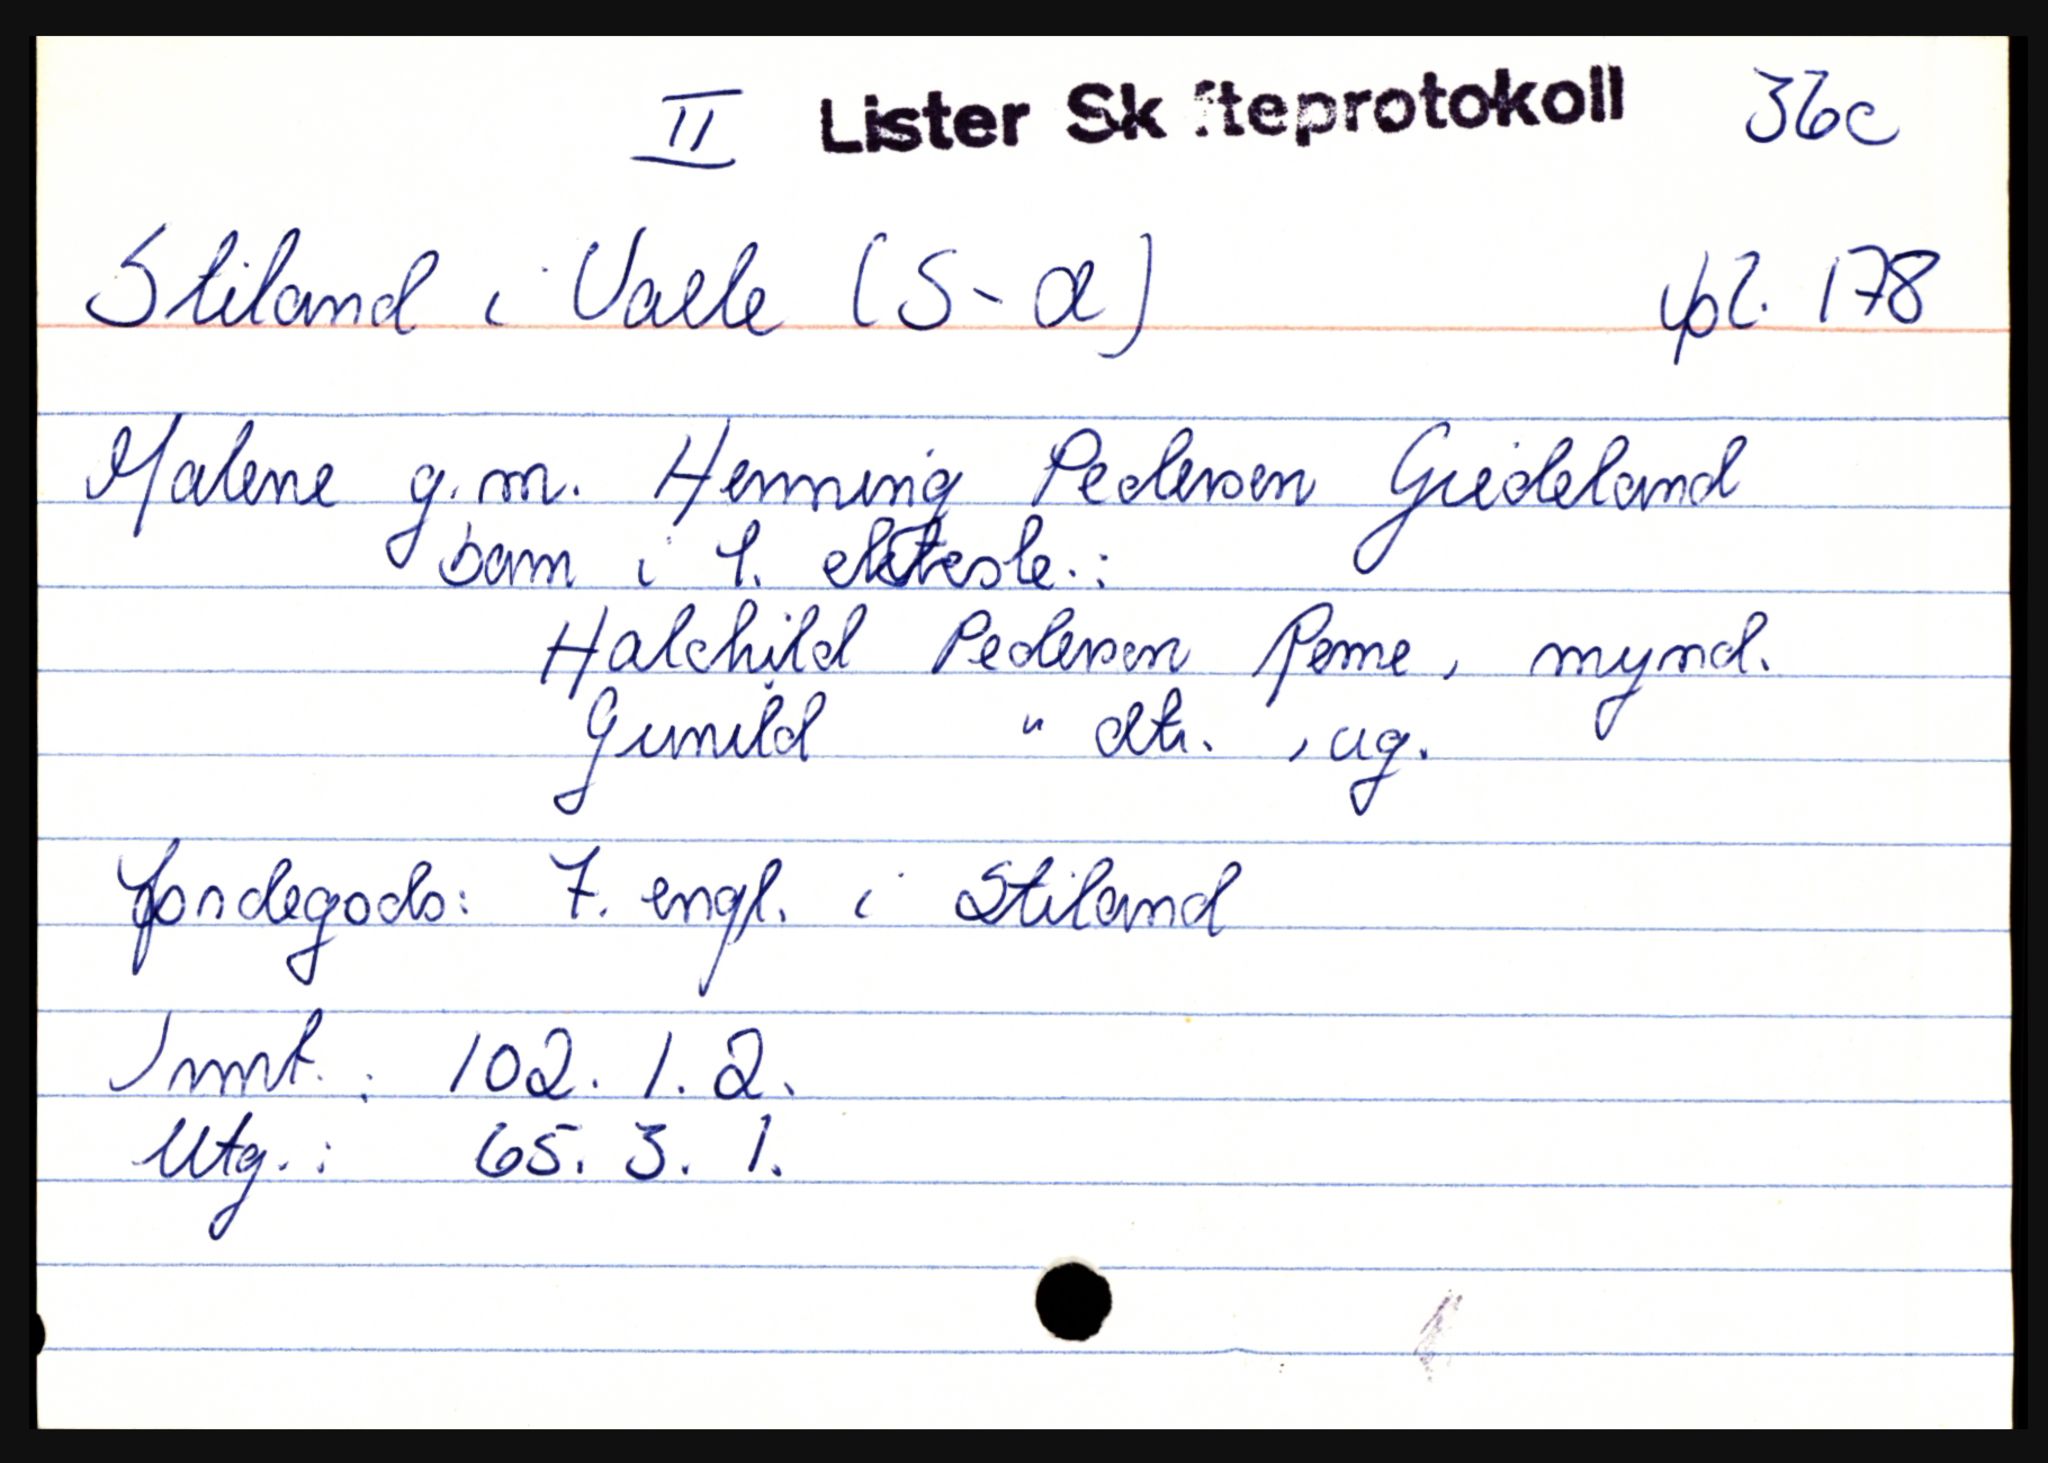 II Lister Skifteprotokoll 36c
Stiland i Valle (S-a) 178
Malene g.m. Henning Pedersen Giedeland
barn i 1. ektesk.:
Halchild Pedersen Rome, mynd.
Gunild " dtr. , ug.
Jordegods: 7. engl. i Stiland
Innt.: 102. 1. 2.
Utg.: 65. 3. 1.